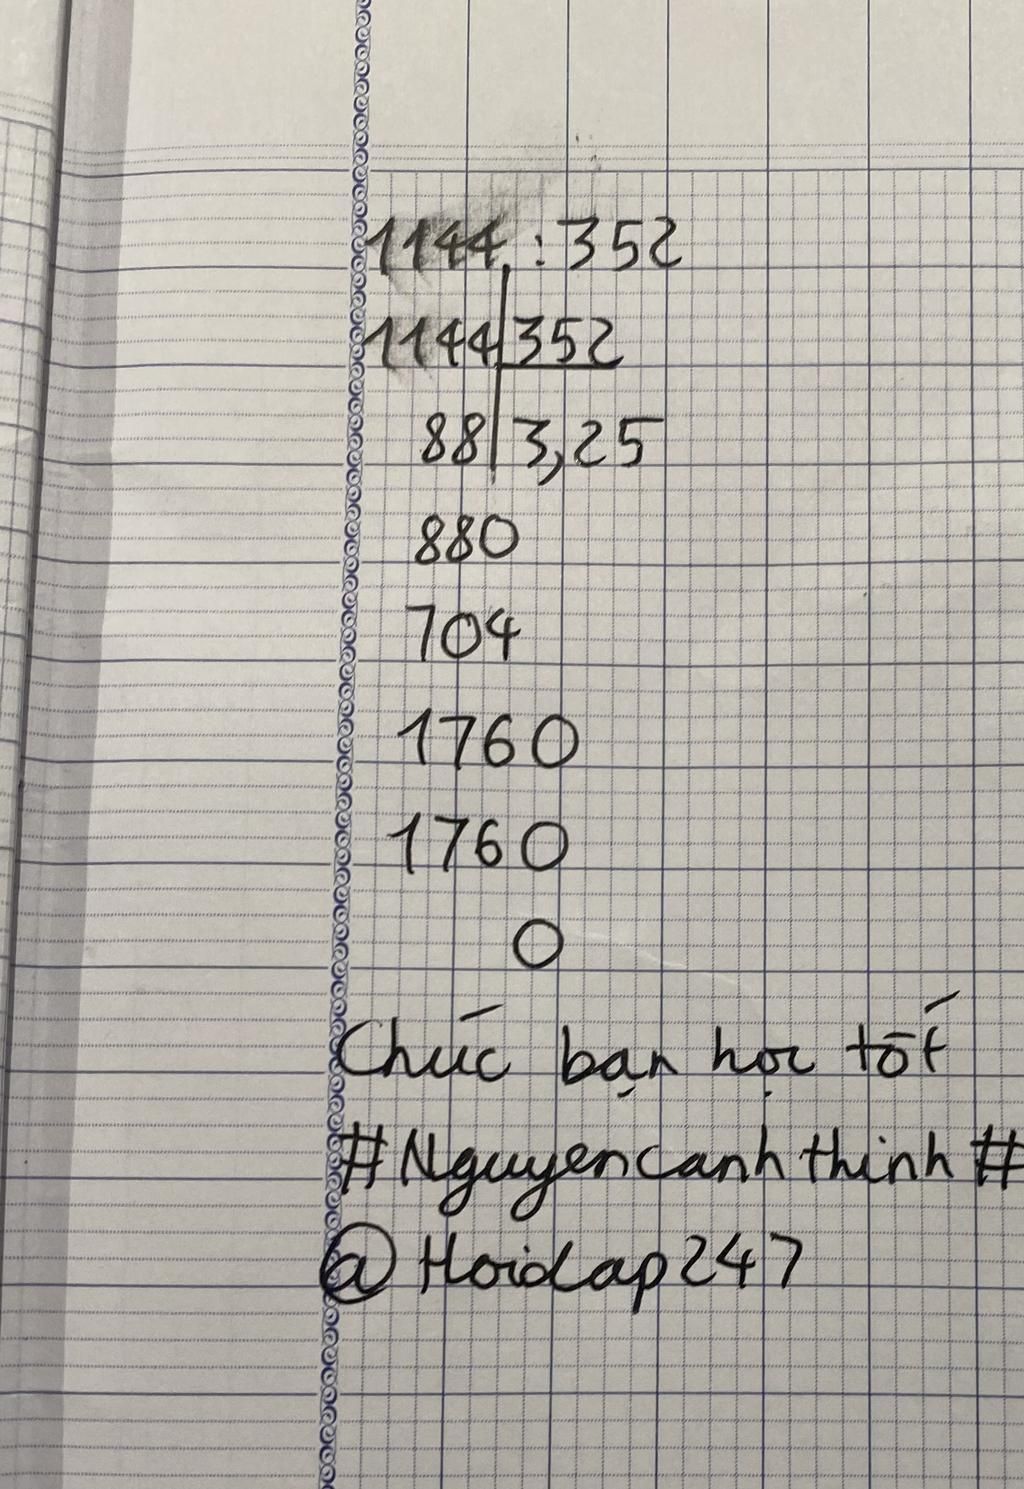 1144 : 352
1144 352
88 3,25
880
704
1760
1760
0
Chúc bạn học tốt
#Nguyencanhthinh#
@Hoidap247